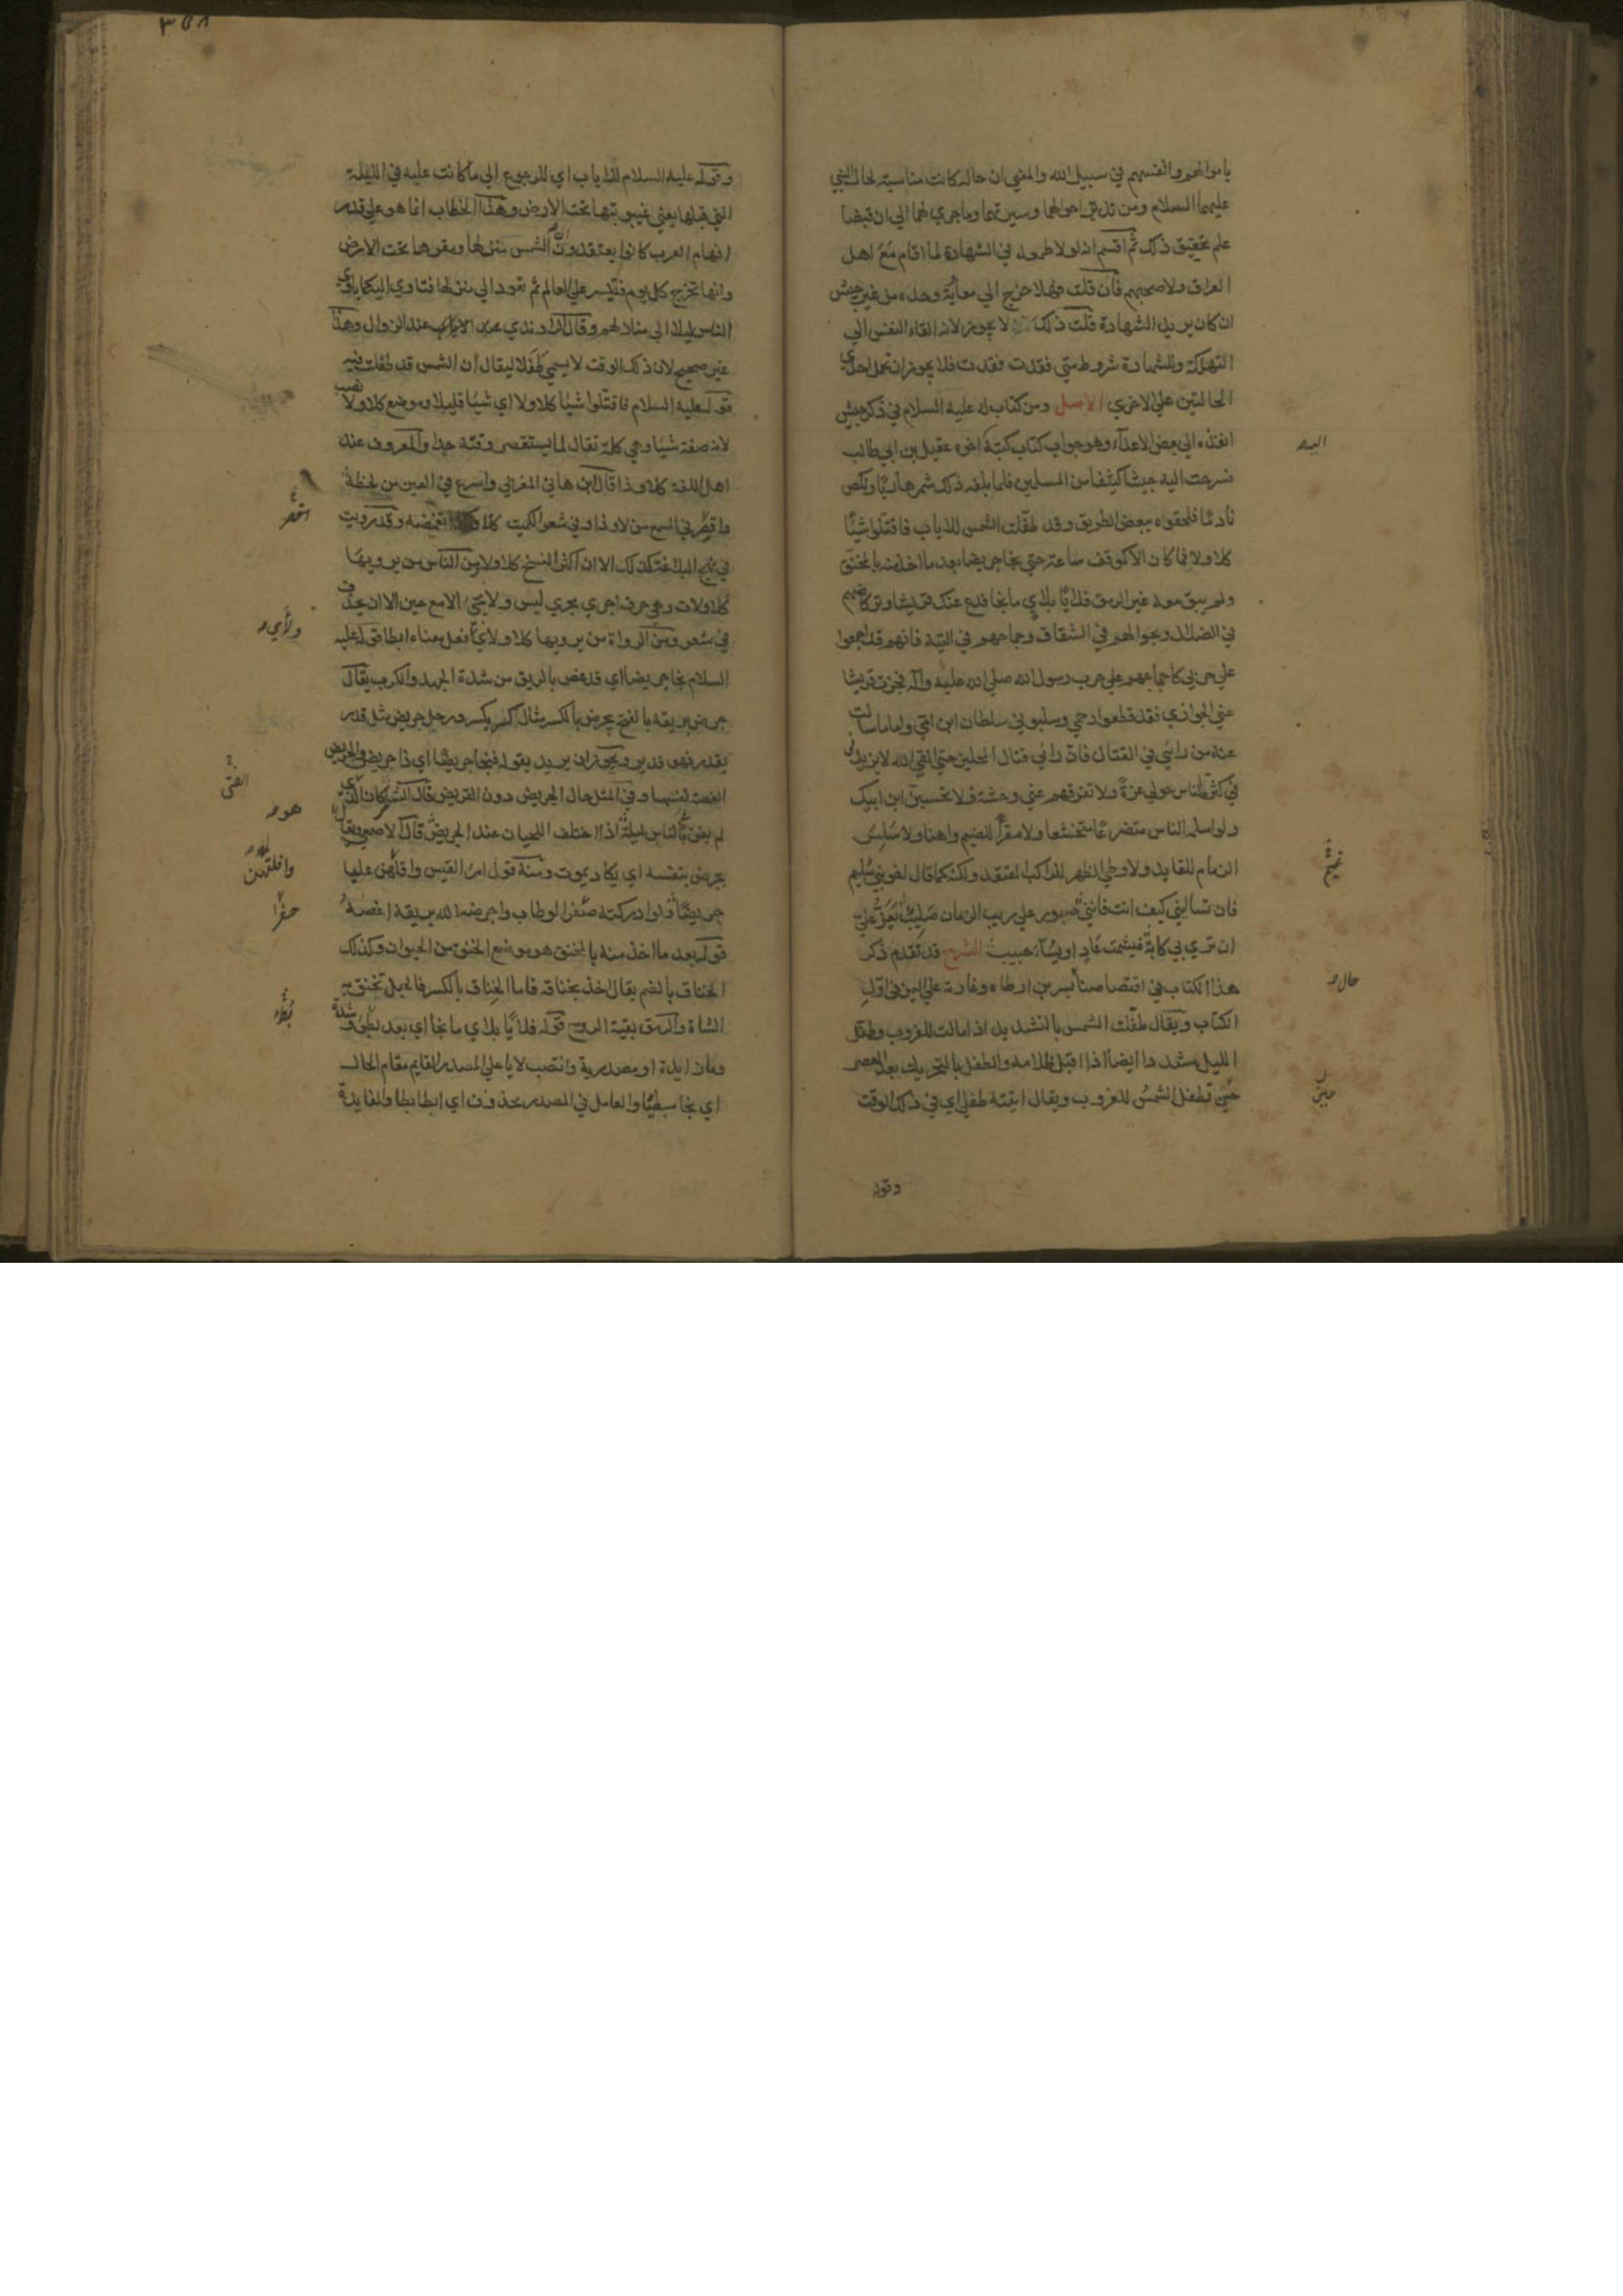 باموالهم وانفسهم في سبيل الله والمعنى ان حاله كانت مناسبة لحال النبي
عليهما السلام ومن تدبر احوالهما وسيرتهما وما جرى لهما الى ان قبضا
علم تحقيق ذلك ثم اقسم انه لولا طمعه في الشهادة لما اقام مع اهل
العراق ولا صحبهم فان قلت فهلا خرج الي معاوية وحده من غير جيش
ان كان يريد الشهادة قلت ذلك لا يجوز لانه القاء النفس الي
التهلكة وللشهادة شروط متي فقدت فقدت فلا يجوز ان تحمل احدي
الحالتين علي الاخري الاصل ومن كتاب له عليه السلام في ذكر جيش
انفذه الي بعض الاعداء وهو جواب كتاب كتبه اخوه عقيل بن ابي طالب
فسرحت اليه جيشا كثيفا من المسلمين فلما بلغه ذلك شمر هاربا ونكص
نادما فلحقوه ببعض الطريق وقد طفلت الشمس للاياب فاقتتلوا شيئا
كلا ولا فما كان الا كموقف ساعة حتي نجا جريضا بعد ما اخذ منه بالمخنق
ولم يبق معه غير الرمق فلايا بلاي ما نجا فدع عنك قريشا وتركاضهم
في الضلال وتجوالهم في الشقاق وجماحهم في التيه فانهم قد اجمعوا
علي حربي كاجماعهم علي حرب رسول الله صلي الله عليه وآله فجزت قريشا
عني الجوازي فقد قطعوا رحمي وسلبوني سلطان ابن امي واما ما سالت
عنه من رائي في القتال فان رائي قتال المحلين حتي القي الله لا يزيدني
كثرة الناس حولي عزة ولا تفرقهم عني وحشة ولا تحسبن ابن ابيك
ولو اسلمه الناس متضرعا متخشعا ولا مقرا للضيم واهنا ولا سلس
الزمام للقايد ولا وطي الظهر للراكب المقتعد ولكنه كما قال اخو بني سليم
فان تساليني كيف انت فانني صبور علي ريب الزمان صليب يعز علي
ان تري بي كابة فيشمت عاد او يساء حبيب الشرح قد تقدم ذكر
هذا الكتاب في اقتصاصنا بسر بن ارطاه وغارته علي اليمن في اول
الكتاب ويقال طفلت الشمس بالتشديد اذا مالت للغروب وطفل
الليل مشددا ايضا اذا اقبل ظلامه والطفل بالتحريك بعد العصر
حين تطفل الشمس للغروب ويقال اتيته طفلا اي في ذلك الوقت
وقوله
اليه
حال
حين
وقوله عليه السلام للاياب اي للرجوع الي ما كانت عليه في الليلة
التي قبلها يعني غيبوبتها تحت الارض وهذا الخطاب انما هو علي قدر
افهام العرب كانوا يعتقدون ان الشمس منزلها ومقرها تحت الارض
وانها تخرج كل يوم فتسير علي العالم ثم تعود الي منزلها فتاوي اليه كما ياوي
الناس ليلا الي منازلهم وقال الراوندي عند الاياب عند الزوال وهذا
غير صحيح لان ذلك الوقت لا يسمي طفلا ليقال ان الشمس قد طفلت فيه
قوله عليه السلام فاقتتلوا شيئا كلا ولا اي شيئا قليلا وموضع كلا ولا نصب
لانه صفة شيئا وهي كلمة تقال لما يستقصر وقته جدا والمعروف عند
اهل اللغة كلا وذا قال ابن هاني المغربي واسرع في العين من لحظة
واقصر في السمع من لا وذا وفي شعر الكميت كلا وكذا تغميضة وقد رويت
في نهج البلاغة كذلك الا ان اكثر النسخ كلا ولا ومن الناس من يرويها
كلا ولات وهي حرف اجري مجري ليس ولا يجي الا مع حين الا ان يحذف
في شعر ومن الرواة من يرويها كلا ولاي فعل معناه ابطا قوله عليه
السلام نجا جريضا اي قد غص بالريق من شدة الجهد والكرب يقال
جرض بريقه بالفتح يجرض بالكسر مثال كسر يكسر ورجل جريض مثل قدر
يقدر فهو قدير ويجوز ان يريد بقوله فنجا جريضا اي ذا جريض والجريض
الغصة نفسها وفي المثل حال الجريض دون القريض قال الشاعر كان الفتي
لم يغن في الناس ليلة اذا اختلف اللحيان عند الجريض قال الاصمعي ويقال
يجرض بنفسه اي يكاد يموت ومنه قول امرء القيس وافلتهن علباء
جريضا ولو ادركنه صفر الوطاب واجرضه الله بريقه اغصه
قوله بعد ما اخذ منه بالمخنق هو موضع الخنق من الحيوان وكذلك
الخناق بالضم يقال اخذ بخناقه فاما الخناق بالكسر فالحبل تخنق به
الشاة والرمق بقية الروح قوله فلايا بلاي ما نجا اي بعد بطء وشدة
وما زايدة او مصدرية وانتصب لايا علي المصدر القايم مقام الحال
اي نجا مبطئا والعامل في المصدر محذوف اي ابطا بطا والفايدة
اقصر
ولأي
الفتي
هو
وافلتهن
صفر
بطء